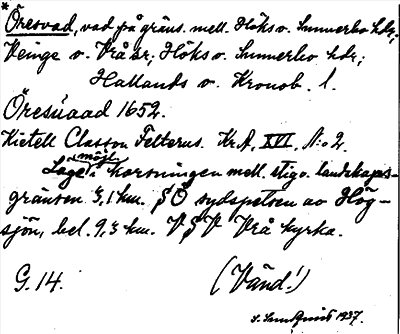 * Öresvad, vad på gräns. mell. Höks o. Sunnerbo hdr;
Veinge o. Vrå sr; Höks o. Sunnerbo hdr;
Hallands o. Kronob. l.
Öresuaad 1652.
Kietell Classon Felterus. Kr.A. XVI, N:o 2.
Läge möjl. i korsningen mell. stig o. landskaps-
gränsen 3,1 km. SÖ sydspetsen av Hög-
sjön, bel. 9,3 km. VSV Vrå kyrka.
G. 14. (Vänd!)
S. Sundquist 1937.